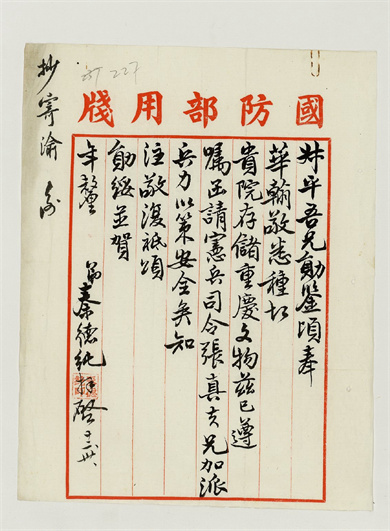 國防部用牋
叔平吾兄勛鑒頃奉
華翰敬悉種切
貴院存儲重慶文物茲已遵
囑函請憲兵司令張真夫兄加派
兵力以策安全矣知
注敬復祗頌
勛綏並賀
年釐 弟秦德純拜啓
抄寄渝
227